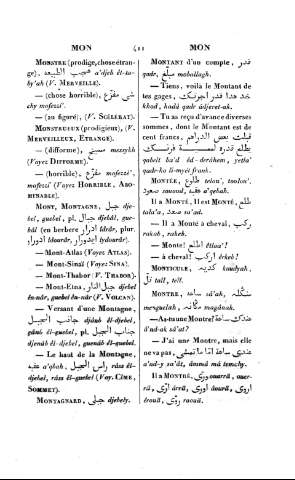 MON 411 MON
MONSTRE (prodige, chose étran-
ge), عجب الطبيعة a'djeb ét-ta-
by'ah (V. MERVEILLE).
— (chose horrible), شي مفزع
chy mofezzi'.
— (au figuré), (V. SCÉLÉRAT).
MONSTRUEUX (prodigieux), (V.
MERVEILLEUX, ÉTRANGE).
— (difforme), messykh
(Voyez DIFFORME).
— (horrible), مفزع mofezzi',
mofezzi' (Voyez HORRIBLE, ABO-
MINABLE).
MONT, MONTAGNE, جبل dje-
bel, guebel, pl. جبال djebâl, gue-
bâl (en berbere ادرار idrâr, plur.
ادورار idourâr, ايدورار iydourâr).
— Mont-Atlas (Voyez ATLAS).
— Mont-Sinaï (Voyez SINA).
— Mont-Thabor (V. THABOR).
— Mont-Etna, جبل النار djebel
én-nâr, guebel én-nâr (V. VOLCAN).
— Versant d'une Montagne,
جانب الجبل djânb él-djebel,
gânb él-guebel, pl. جناب الجبل
djenâb él-djebel, guenâb él-guebel.
— Le haut de la Montagne,
عقبه a'qbah, راس الجبل râss él-
djebel, râss él-guebel (Voy. CIME,
SOMMET).
MONTAGNARD, جبلي djebely.
MONTANT d'un compte, قدر
qadr, مبلغ maballagh.
— Tiens, voilà le Montant de
tes gages, خذ هذا قدر اجرتك
khod, hadâ qadr âdjeret-ak.
— Tu as reçu d'avance diverses
sommes, dont le Montant est de
cent francs,
qabelt ba'd éd-derâhem, yetla'
qadr-ho li-myet frank.
MONTÉE, طلوع telou', toulou',
صعود soaoud, عقبه a'qebah.
IL A MONTÉ, IL EST MONTÉ, طلع
tala'a, صعد sa'ad.
— Il a Monté à cheval, ركب
rakab, rakeb.
— Monte! اطلع étlaa'!
— à cheval! اركب érkeb!
MONTICULE, كديه koudyah,
تل tall, tell.
MONTRE, ساعة sâ'ah,
mesguelah, مكانة magânah.
— As-tu une Montre? عندك ساعة
a'nd-ak sâ'at?
— J'ai une Montre, mais elle
ne va pas,
a'nd-y sa'ât, âmmâ mâ temchy.
IL A MONTRÉ, ورى ouarrâ, ouer-
râ, ارى arrâ, اورى âourâ,
ârouâ, روى raouâ.